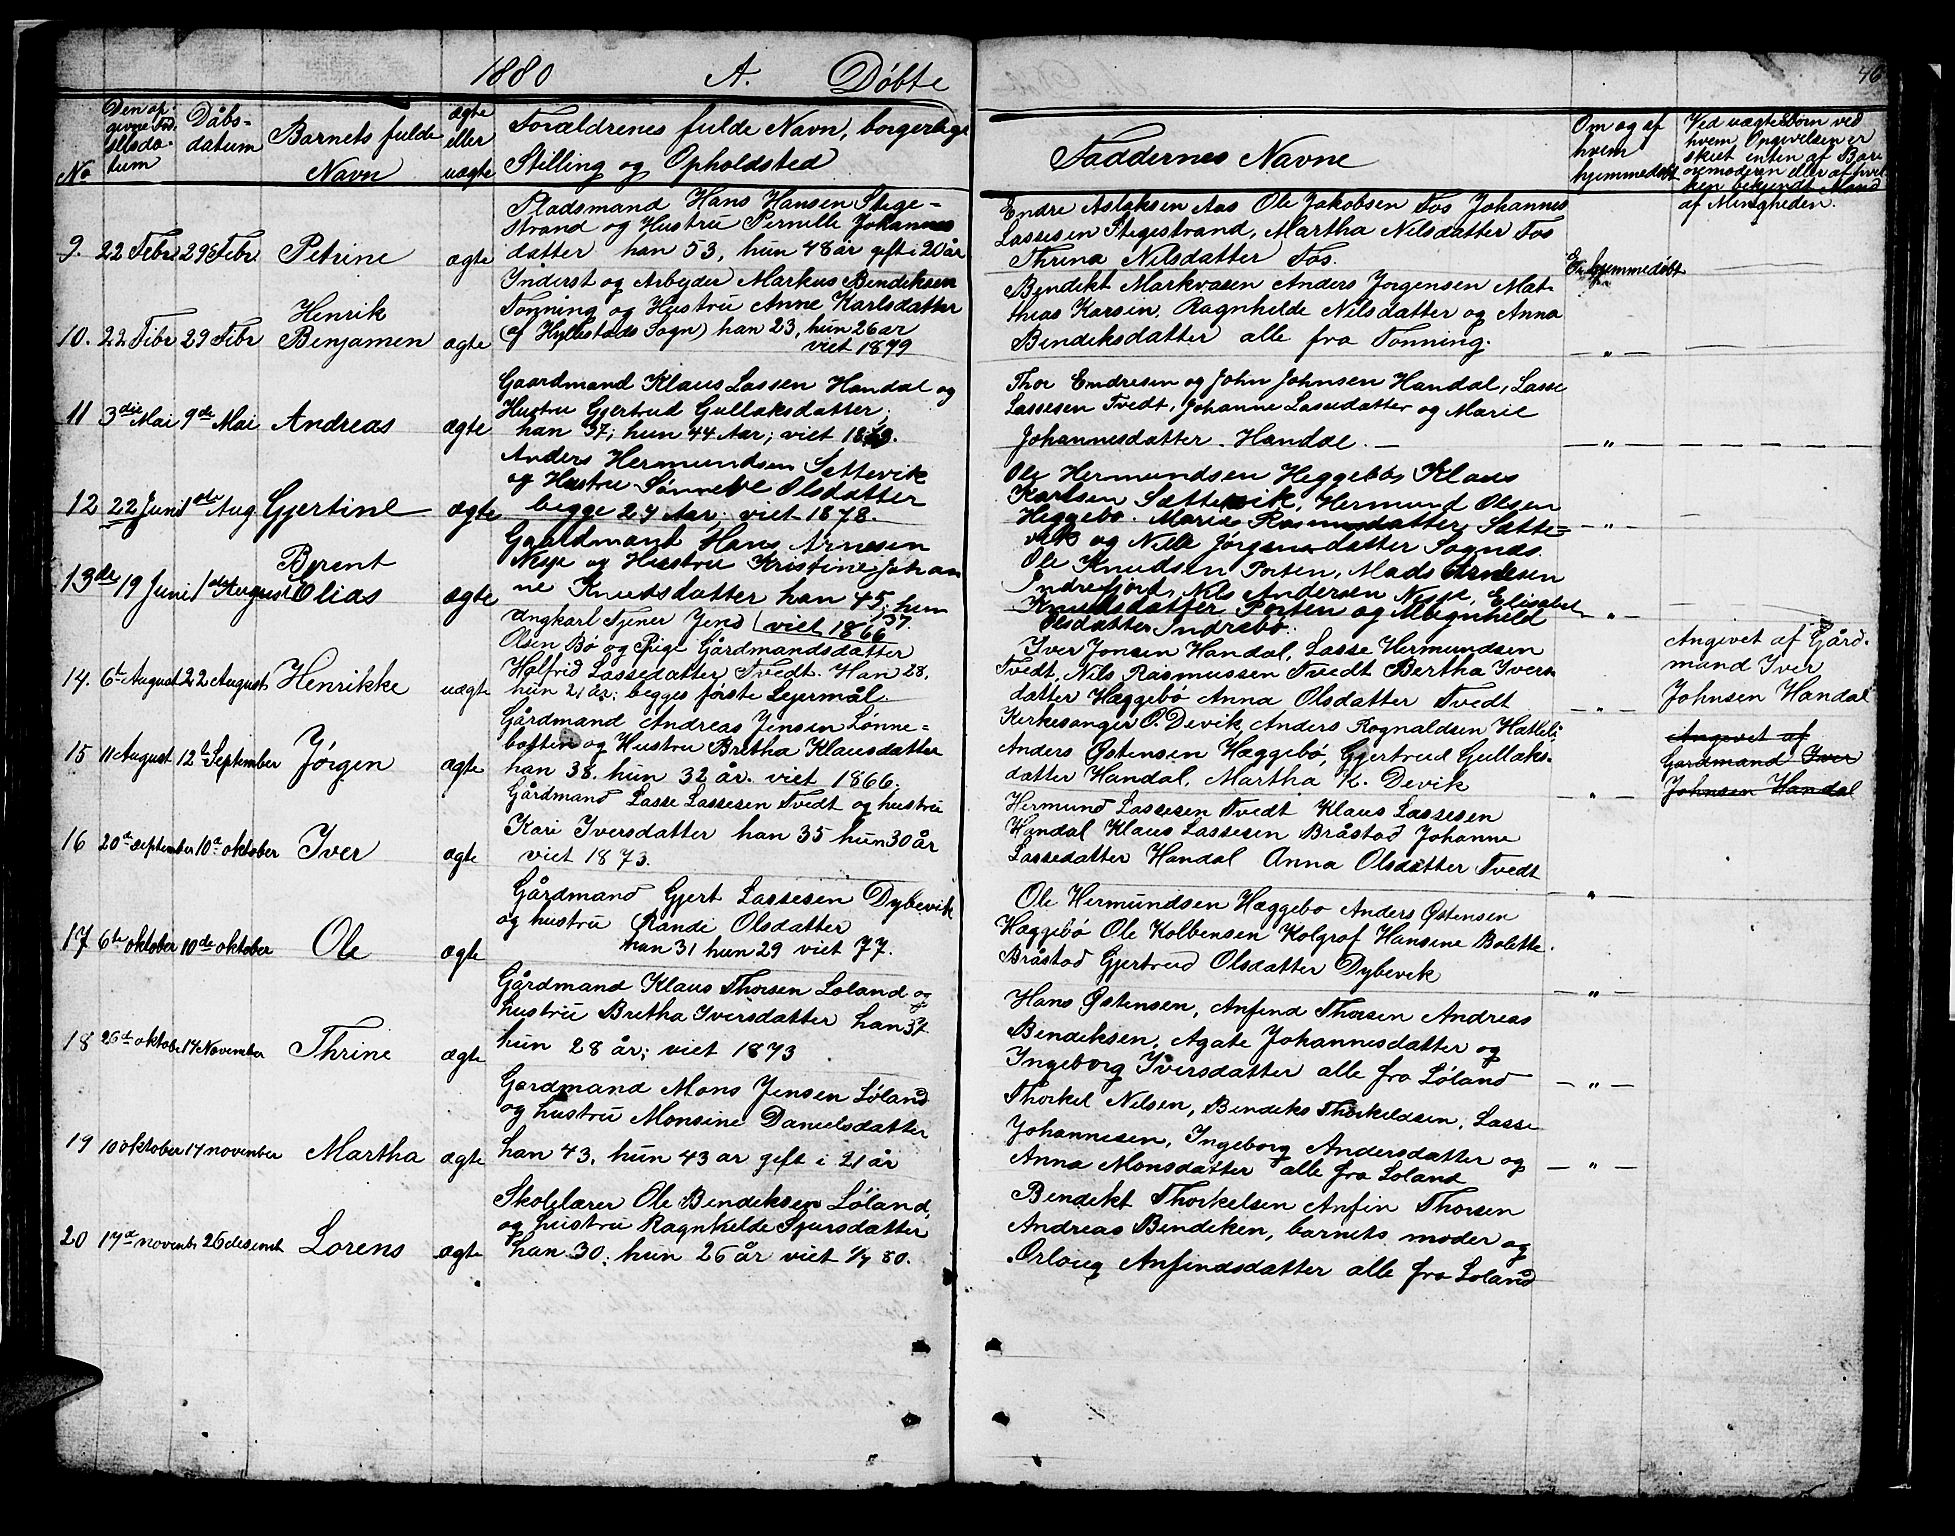 1880 A. Døbte
46
No
Den op-
givne Fød-
selsda-
tum
Dåbs-
datum
Barnets fulde
Navn
ægte
eller
uægte
Forældrenes fulde Navn, borgerlige
Stilling og Opholdsted
Faddernes Navne
Om og af
hvem
hjemmedøbt
Ved uægte Børn ved
hvem Ongivelsen er
skeet enten af Bar-
nemoderen eller af hvil-
ken bekjendt Mand
af Menigheden.
9. 22 Febr 29 Febr Petrine ægte
Pladsmand Hans Hansen Stege-
strand og Hustru Pernille Johannes
datter han 53, hun 48 år gift i 20 år
Endre Aslaksen Aas Ole Jakobsen Fos Johannes
Lassesen Stegestrand, Martha Nilsdatter Fos
Thrina Nilsdatter Fos.
Ei hjemmedøbt
10. 22 Febr 29 Febr Henrik
Benjamen ægte
Inderst og Arbejder Markus Bendiksen
Tonning og Hustru Anne Karlsdatter
(af Hyllestads Sogn) han 23, hun 26 ar
viet 1879
Bendikt Markvasen Anders Jørgensen Mat-
thias Karsen, Ragnhilde Nilsdatter og Anna
Bendiksdatter alle fra Tonning.
— " —
11 3die Mai 9de Mai Andreas ægte
Gaardmand Klaus Lassen Handal og
Hustru Gjertrud Gullaksdatter
han 37; hun 44 Aar; viet
Thor Endresen og John Johnsen Handal, Lasse
Lassesen Tvedt, Johanne Lassedatter og Marie
Johannesdatter Handal. —
— " —
12 22 Juni 1ste Aug Gjertine ægte
Anders Hermundsen Settevik
og Hustru Sønneve Olsdatter
begge 27 Aar. viet 1878.
Ole Hermundsen Heggebø, Klaus
Karlsen Sættevik, Hermund Olsen
Heggebo. Marie Rasmusdatter Sætte=
vik og Nille Jørgensdatter Sognæs.
— " —
13de 19 Juni 1ste August Berent
Olias ægte
Gaardmand Hans Arnesen
Nesje og Hustru Kristine Johan
ne Knudsdatter han 45, hun
37. viet 1866
Ole Knudsen Porten, Mads Arnesen
Indrefjord, Nils Andersen Nesje, Elisabet
Knudsdatter Porten og Magnhild
Olsdatter Indrebø.
— " —
14. 6te August 22 August Henrikke uægte
Ungkarl Tjener Jens
Olsen Bø og Pige Gårdmandsdatter
Halfrid Lassedatter Tvedt. Han 28,
hun 21 år; begges første Lejermål
Iver Jonsen Handal, Lasse Hermundsen
Tvedt, Nils Rasmussen Tvedt Bertha Ivers
datter Hæggebø Anna Olsdatter Tvedt
— " —
Angivet af Gård-
mand Iver
Johnsen Handal
15 11 August 12te September Jørgen ægte
Gårdmand Andreas Jensen Lønne=
boften og Hustru Bretha Klausdatter
han 38. hun 32 år. viet 1866.
Kirkesanger O. Devik, Anders Rognaldsen Hatleli
Anders Østensen Hæggebø, Gjertrud Gullaks-
datter Handal, Martha K. Devik
"
Angivet af
Gardmand Iver
Johnsen Handal
16 20de september 10de oktober Iver ægte
Gårdmand Lasse Lassesen Tvedt og hustru
Kari Iversdatter han 35 hun 30 år
viet 1873.
Hermund Lassesen Tvedt Klaus Lassesen
Handal Klaus Lassesen Bråstad Johanne
Lassedatter Handal Anna Olsdatter Tvedt
"
17 6te oktober 10de oktober Ole ægte
Gårdmand Gjert Lassesen Dybevik
og hustru Rande Olsdatter
han 31 hun 29 viet 77.
Ole Hermundsen Hæggebo Anders Østensen
Hæggebø Ole Kolbensen Kolgrof Hansine Bolette
Bråstad Gjertrud Olsdatter Dybevik
— " —
18 26de oktober 14 November Thrine ægte
Gårdmand Klaus Thorsen Loland og
hustru Bretha Iversdatter han 37
hun 28 år; viet 1873
Hans Østensen, Anfind Thorsen Andreas
Bendiksen, Agate Johannesdatter og
Ingeborg Iversdatter alle fra Løland
— " —
19 10 oktober 14 november Martha ægte
Gardmand Mons Jensen Løland
og hustru Monsine Danielsdatter
han 43, hun 43 ar gift i 21 år
Thorkel Nilsen, Bendiks Thorkeldsen, Lasse
Johannesen, Ingeborg Andersdatter og
Anna Monsdatter alle fra Loland
— " —
20 17de novemb. 26 desemb. Lorens ægte
Skolelærer Ole Bendiksen Løland,
og hustru Ragnhilde Sjursdatter
han 30. hun 26 år viet 4/7 80.
Bendikt Thorkelsen Anfin Thorsen
Andreas Bendiken, barnets moder og
Orloug Anfindsdatter alle fra Loland